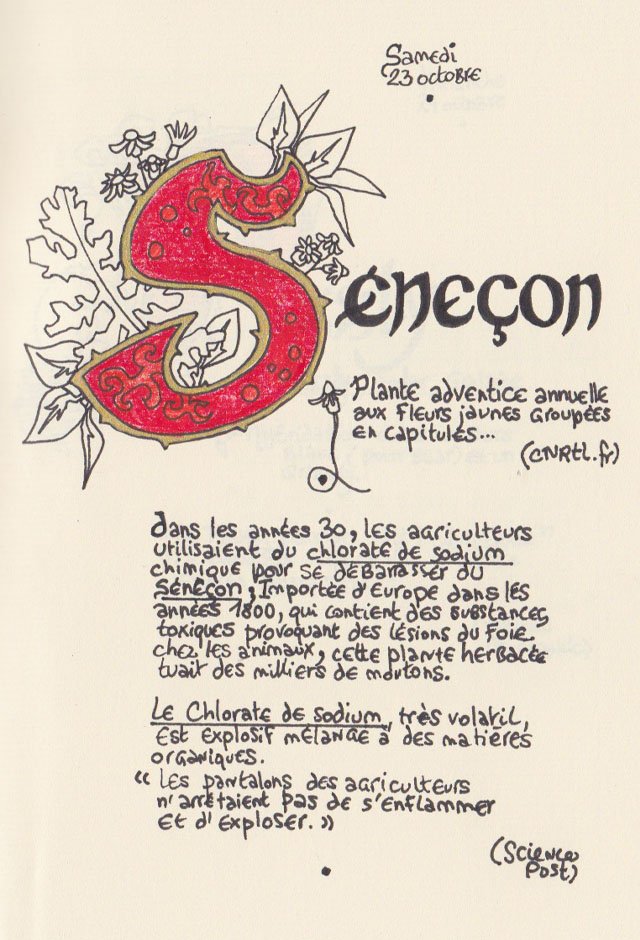 Samedi
23 octobre
Séneçon
Plante adventice annuelle
aux fleurs jaunes groupées
en capitules...
(CNRTL.fr)
Dans les années 30, les agriculteurs
utilisaient du chlorate de sodium
chimique pour se débarrasser du
Séneçon, Importée d'Europe dans les
années 1800, qui contient des substances
toxiques provoquant des lésions du foie
chez les animaux, cette plante herbacée
tuait des milliers de moutons.
Le Chlorate de sodium, très volatil,
est explosif mélangé à des matières
organiques.
" Les pantalons des agriculteurs
n'arrêtaient pas de s'enflammer
et d'exploser. »
(Science
Post)